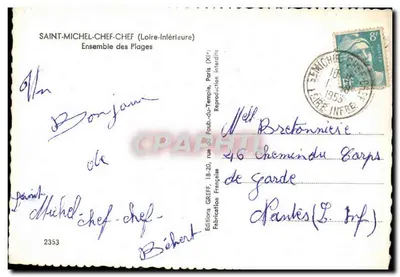 SAINT-MICHEL-CHEF-CHEF (Loire-Inférieure)
Ensemble des Plages
Un
Bonjour
de
Saint
Michel-chef-chef
Bébert
2353
Editions GREFF, 18-20, rue du Faub.-du-Temple, Paris (XIe)
Fabrication Française
Reproduction interdite
CPARAMA
ST MICHEL
18
1953
LOIRE INFRE
8F
Mell Bretonnière
46 Chemin du Corps
de Garde
Nantes (L. Inf)